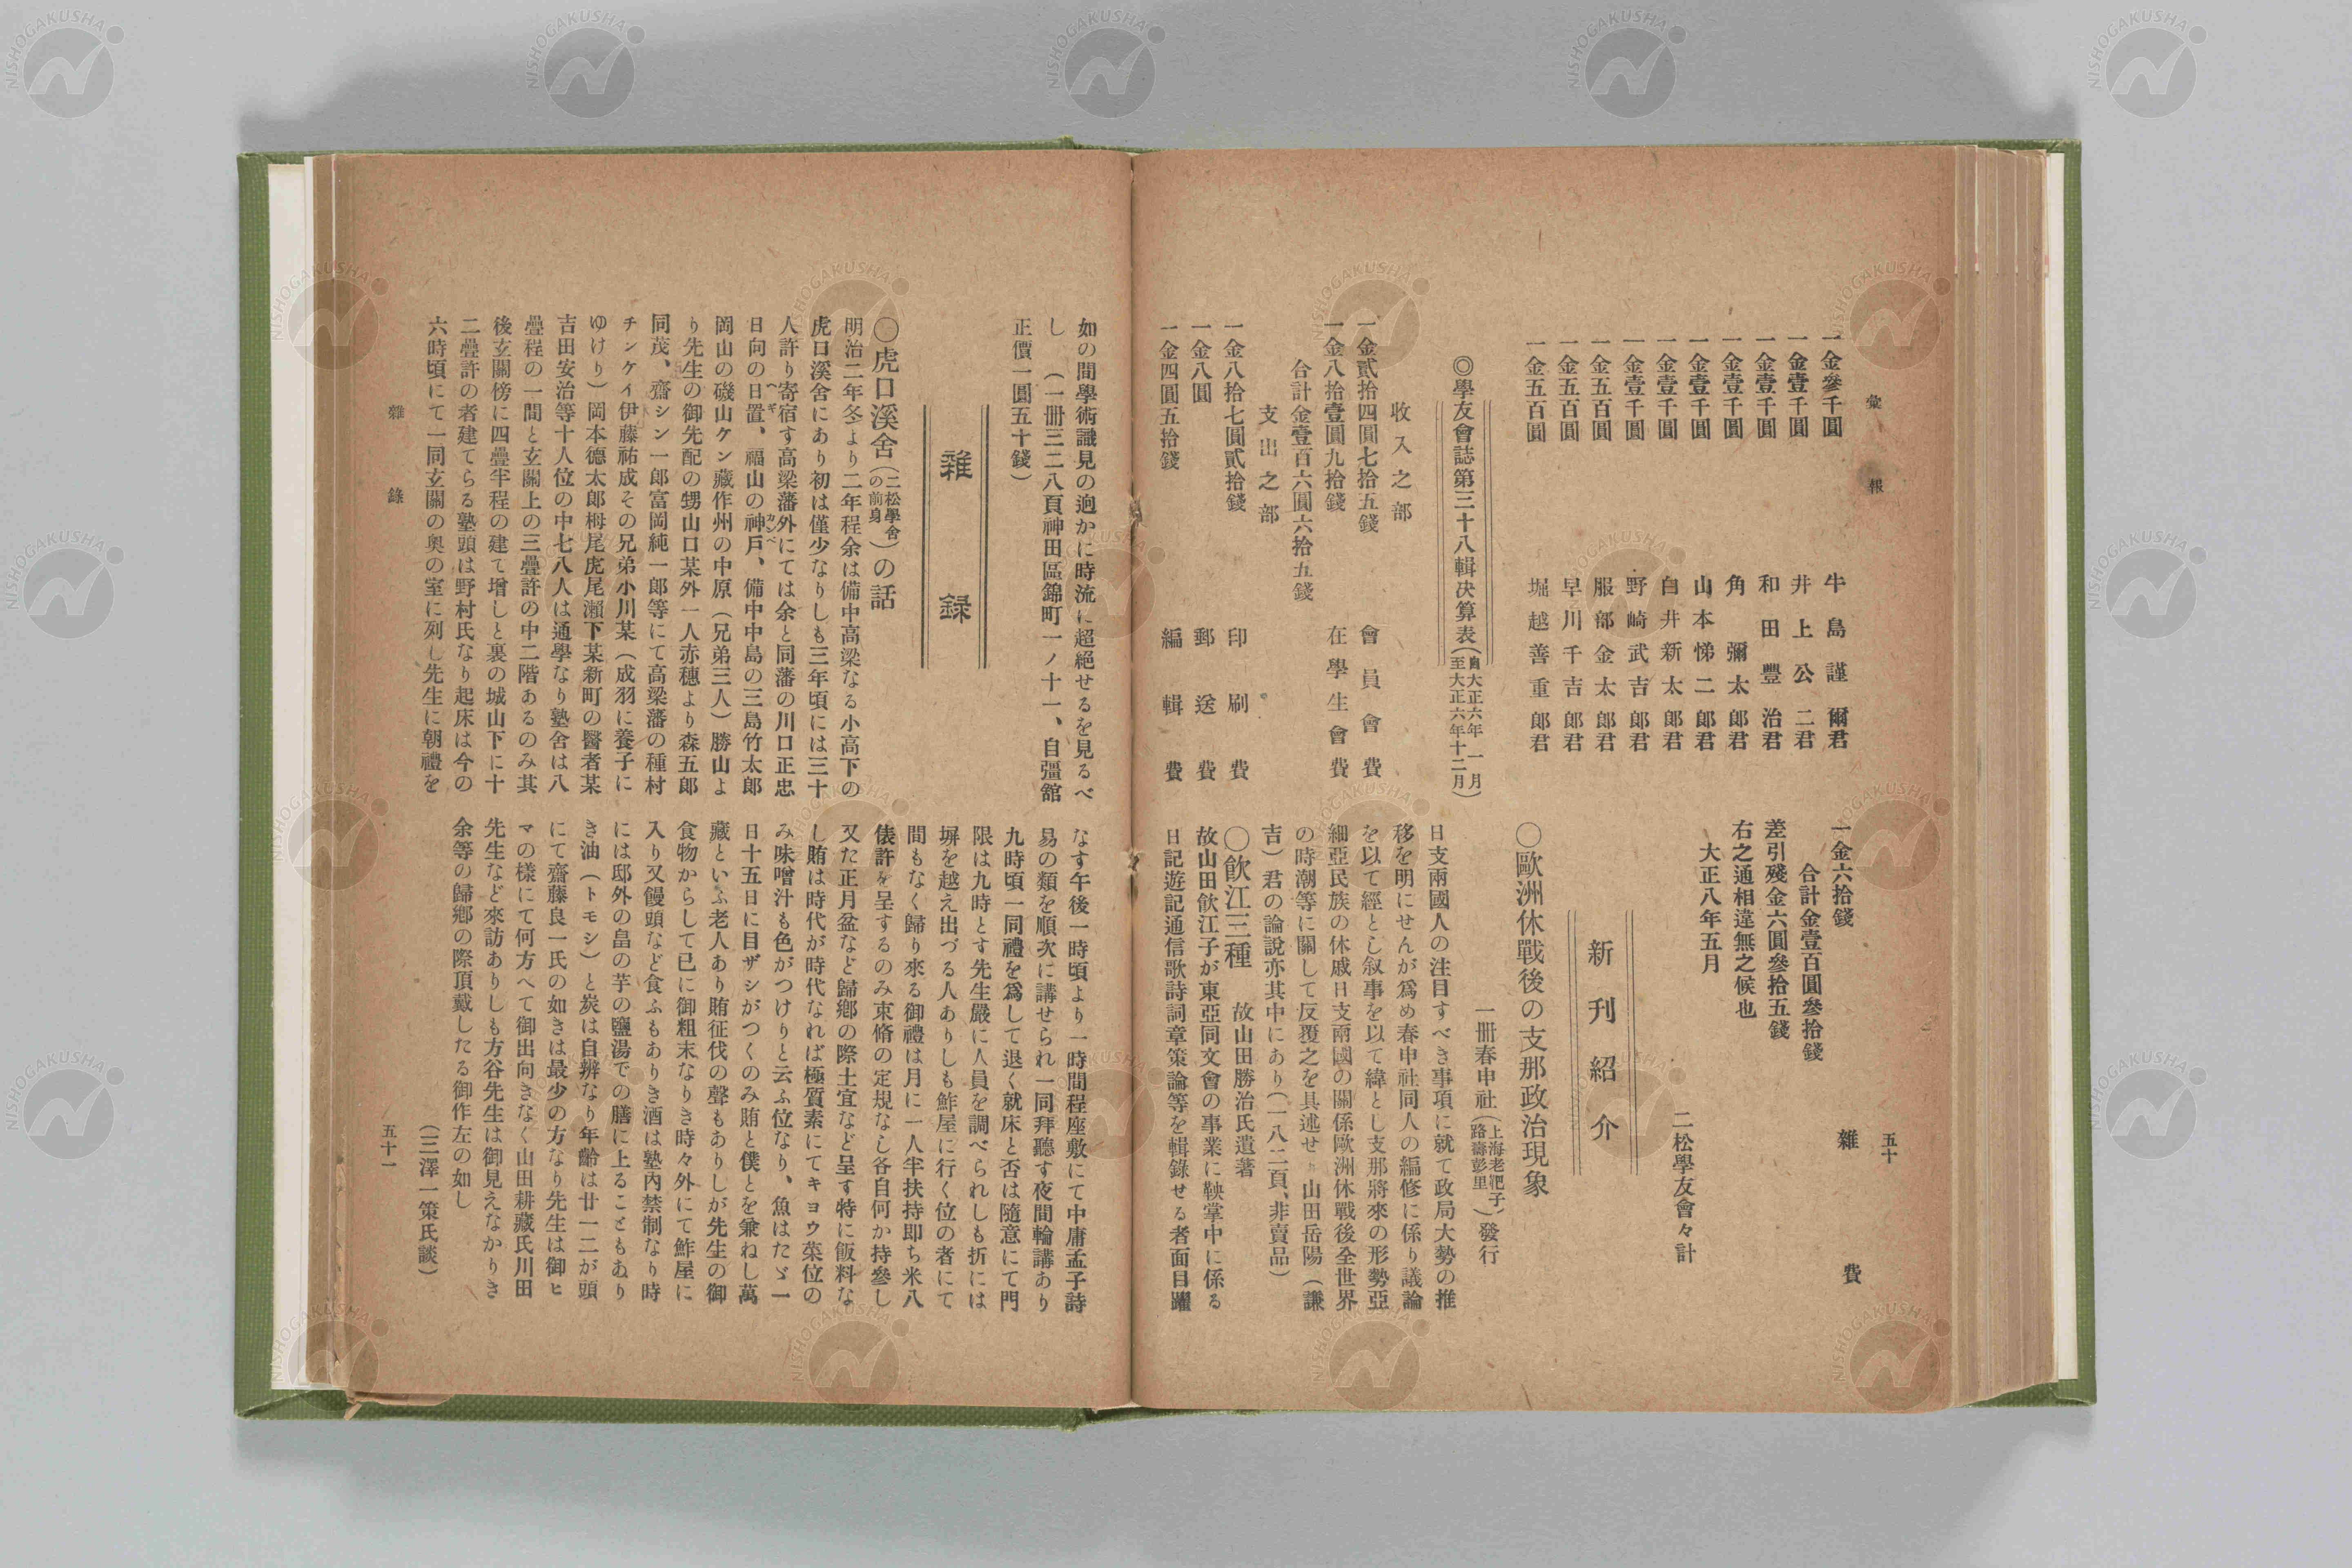 彙報
五十
一金參千圓 牛島謹爾君
一金壹千圓 井上公二君
一金壹千圓 和田豐治君
一金壹千圓 角彌太郎君
一金壹千圓 山本悌二郎君
一金壹千圓 白井新太郎君
一金壹千圓 野崎武吉郎君
一金五百圓 服部金太郎君
一金五百圓 早川千吉郎君
一金五百圓 堀越善重郎君
◎學友會誌第三十八輯决算表(自大正六年一月至大正六年十二月)
收入之部
一金貳拾四圓七拾五錢 會員會費
一金八拾壹圓九拾錢 在學生會費
合計金壹百六圓六拾五錢
支出之部
一金八拾七圓貳拾錢 印刷費
一金八圓 郵送費
一金四圓五拾錢 編輯費
一金六拾錢 雜費
合計金壹百圓參拾錢
差引殘金六圓參拾五錢
右之通相違無之候也
大正八年五月
二松學友會々計
新刊紹介
〇歐洲休戰後の支那政治現象
一冊春申社(上海老靶子路壽彭里)發行
日支兩國人の注目すべき事項に就て政局大勢の推
移を明にせんが爲め春申社同人の編修に係り議論
を以て經とし叙事を以て緯とし支那將來の形勢亞
細亞民族の休戚日支兩國の關係歐洲休戰後全世界
の時潮等に關して反覆之を具述せり山田岳陽(謙
吉)君の論說亦其中にあり(一八二頁、非賣品)
〇飮江三種 故山田勝治氏遺著
故山田飮江子が東亞同文會の事業に鞅掌中に係る
日記遊記通信歌詩詞章策論等を輯錄せる者面目躍
如の間學術識見の逈かに時流に超絕せるを見るべ
し (一冊三二八頁神田區錦町一ノ十一、自彊舘
正價一圓五十錢)
雜錄
〇虎口溪舍(二松學舍の前身)の話
明治二年冬より二年程余は備中高梁なる小高下の
虎口溪舍にあり初は僅少なりしも三年頃には三十
人許り寄宿す高梁藩外にては余と同藩の川口正忠
日向の日置、福山の神戶、備中中島の三島竹太郎
岡山の磯山ケン藏作州の中原(兄弟三人)勝山よ
り先生の御先配の甥山口某外一人赤穗より森五郎
同茂、齋シン一郎富岡純一郎等にて高梁藩の種村
チンケイ伊藤祐成その兄弟小川某(成羽に養子に
ゆけり)岡本德太郎栂尾虎尾瀨下某新町の醫者某
吉田安治等十人位の中七八人は通學なり塾舍は八
疊程の一間と玄關上の三疊許の中二階あるのみ其
後玄關傍に四疊半程の建て增しと裏の城山下に十
二疊許の者建てらる塾頭は野村氏なり起床は今の
六時頃にて一同玄關の奥の室に列し先生に朝禮を
なす午後一時頃より一時間程座敷にて中庸孟子詩
易の類を順次に講せられ一同拜聽す夜間輪講あり
九時頃一同禮を爲して退く就床と否は隨意にて門
限は九時とす先生嚴に人員を調べられしも折には
塀を越え出づる人ありしも鮓屋に行く位の者にて
間もなく歸り來る御禮は月に一人半扶持即ち米八
俵許を呈するのみ束脩の定規なし各自何か持參し
又た正月盆など歸鄕の際土宜など呈す特に飯料な
し賄は時代が時代なれば極質素にてキョウ菜位の
み味噌汁も色がつけりと云ふ位なり、魚はたゞ一
日十五日に目ザシがつくのみ賄と僕とを兼ねし萬
藏といふ老人あり賄征伐の聲もありしが先生の御
食物からして已に御粗末なりき時々外にて鮓屋に
入り又饅頭など食ふもありき酒は塾內禁制なり時
には邸外の畠の芋の鹽湯での膳に上ることもあり
き油(トモシ)と炭は自辨なり年齡は廿一二が頭
にて齋藤良一氏の如きは最少の方なり先生は御ヒ
マの樣にて何方へて御出向きなく山田耕藏氏川田
先生など來訪ありしも方谷先生は御見えなかりき
余等の歸鄕の際頂戴したる御作左の如し
(三澤一策氏談)
雜錄
五十一